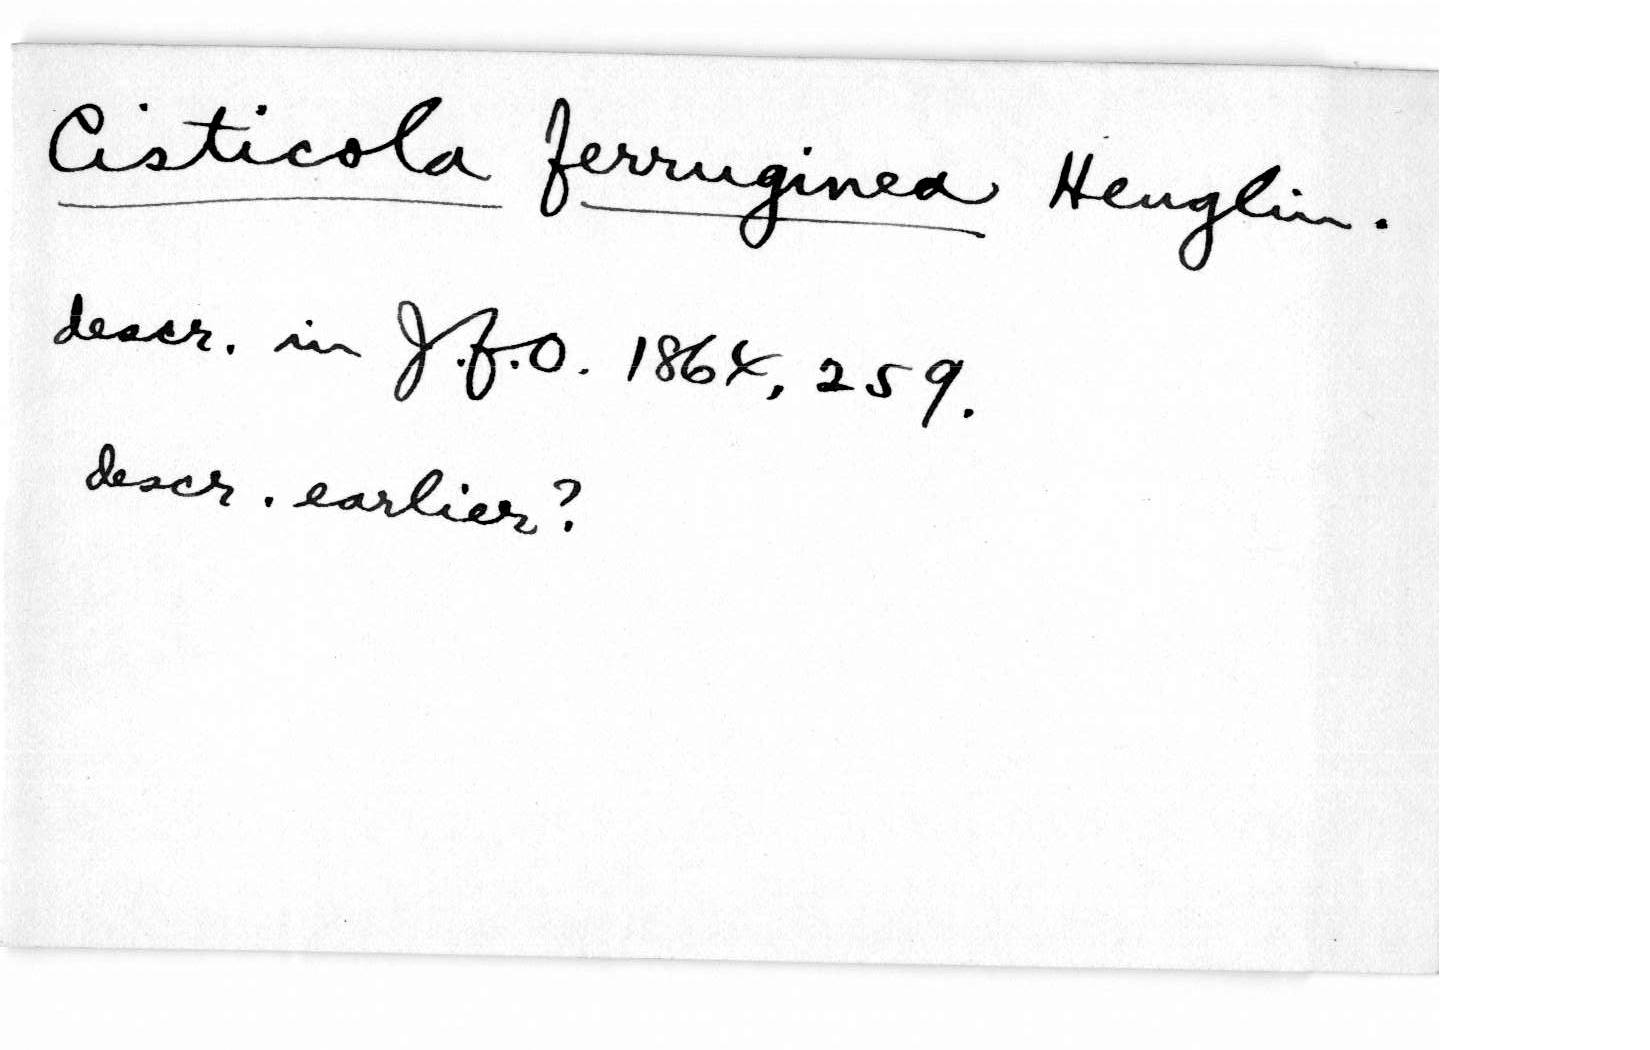 Cisticola ferruginea Heuglin.
descr. in J.f.O. 1864, 259.
descr. earlier?